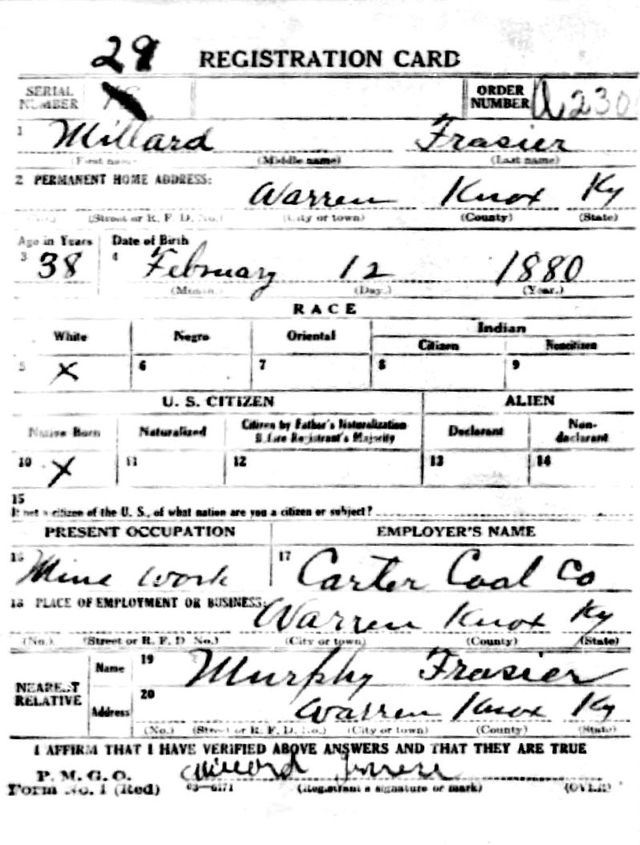 29 REGISTRATION CARD
SERIAL NUMBER
ORDER NUMBER A230
1 Millard Frasier
(First name) (Middle name) (Last name)
2 PERMANENT HOME ADDRESS:
Warren Knox Ky
(No.) (Street or R. F. D. No.) (City or town) (County) (State)
Age in Years Date of Birth
3 38 4 February 12 1880
(Month.) (Day.) (Year.)
RACE
White Negro Oriental Indian
Citizen Noncitizen
5 X 6 7 8 9
U. S. CITIZEN ALIEN
Native Born Naturalized Citizen by Father's Naturalization Before Registrant's Majority Declarant Non-declarant
10 X 11 12 13 14
15
If not a citizen of the U. S., of what nation are you a citizen or subject?
PRESENT OCCUPATION EMPLOYER'S NAME
16 Mine work 17 Carter Coal Co
18 PLACE OF EMPLOYMENT OR BUSINESS:
Warren Knox Ky
(No.) (Street or R. F. D. No.) (City or town) (County) (State)
NEAREST RELATIVE
Name 19 Murphy Frasier
Address 20 Warren Knox Ky
(No.) (Street or R. F. D. No.) (City or town) (County) (State)
I AFFIRM THAT I HAVE VERIFIED ABOVE ANSWERS AND THAT THEY ARE TRUE
P. M. G. O.
Form No. 1 (Red) 03—6171 (Registrant's signature or mark) (OVER)